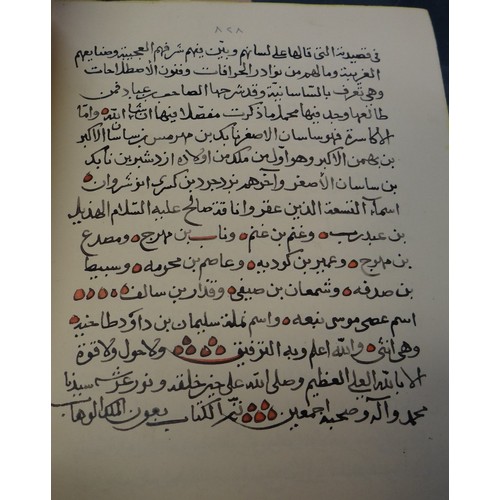 ٨٢٨
فى قصيدته التى قالها على لسانهم وبين فيهم شرفهم العجيبة وصنايعهم
الغريبة وما لهم من نوادر الخرافات وفنون الاصطلاحات
وهى تعرف بالساسانية وقد شرحها الصاحب عباد فمن
طالعها وجد فيها محمل ما ذكرت مفصلا فيها ان شا الله واما
الاكاسرة فهو ساسان الاصغر بن بابك بن مهرمس بن ساسان الاكبر
بن بهمن الاكبر وهو اول من ملك من اولاده ازدشير بن بابك
بن ساسان الاصغر واخرهم يزدجرد بن كسرى انوشروان
اسماء التسعة الذين عقروا ناقة صالح عليه السلام الهذيل
بن عبد رب وغنم بن غنم ورئاب بن مهرج ومصدع
بن مهرج وعمير بن كردبه وعاصم بن مخرمه وسبيط
بن صدقه وشمعان بن صيفى وقدار بن سالف
اسم عصى موسى نبعه واسم نملة سليمان بن داود طاخيه
وهى انثى والله اعلم وبه التوفيق ولا حول ولا قوة
الا بالله العلى العظيم وصلى الله على خير خلقه ونور عرشه سيدنا
محمد واله وصحبه اجمعين تم الكتاب بعون الملك الوهاب